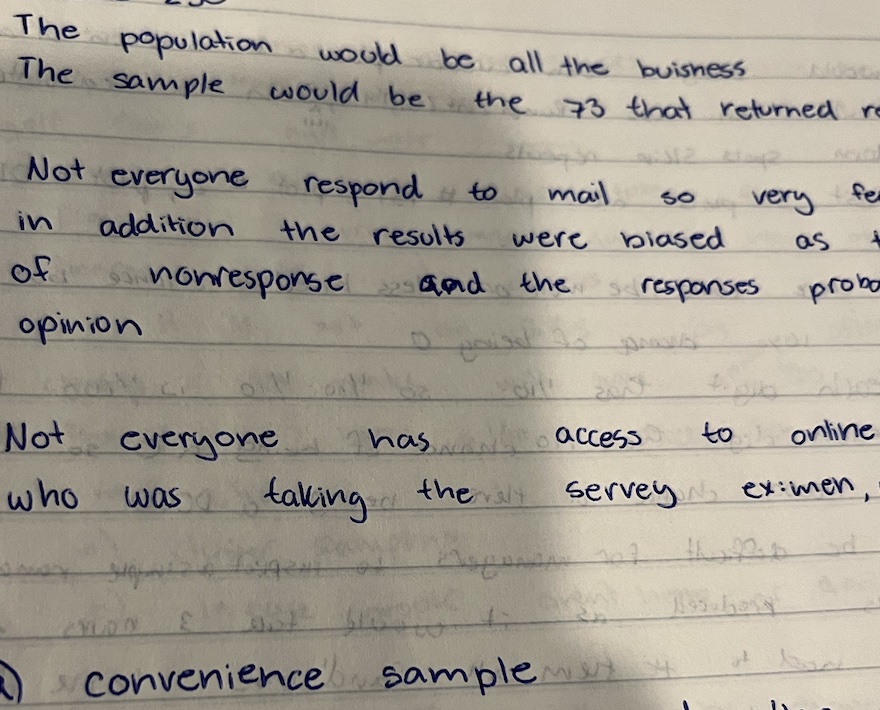 The population would be all the buisness
The sample would be the 73 that returned
Not everyone respond to mail so very
in addition the results were biased as
of nonresponse and the responses
opinion
Not everyone has access to online
who was taking the servey ex:men,
convenience sample